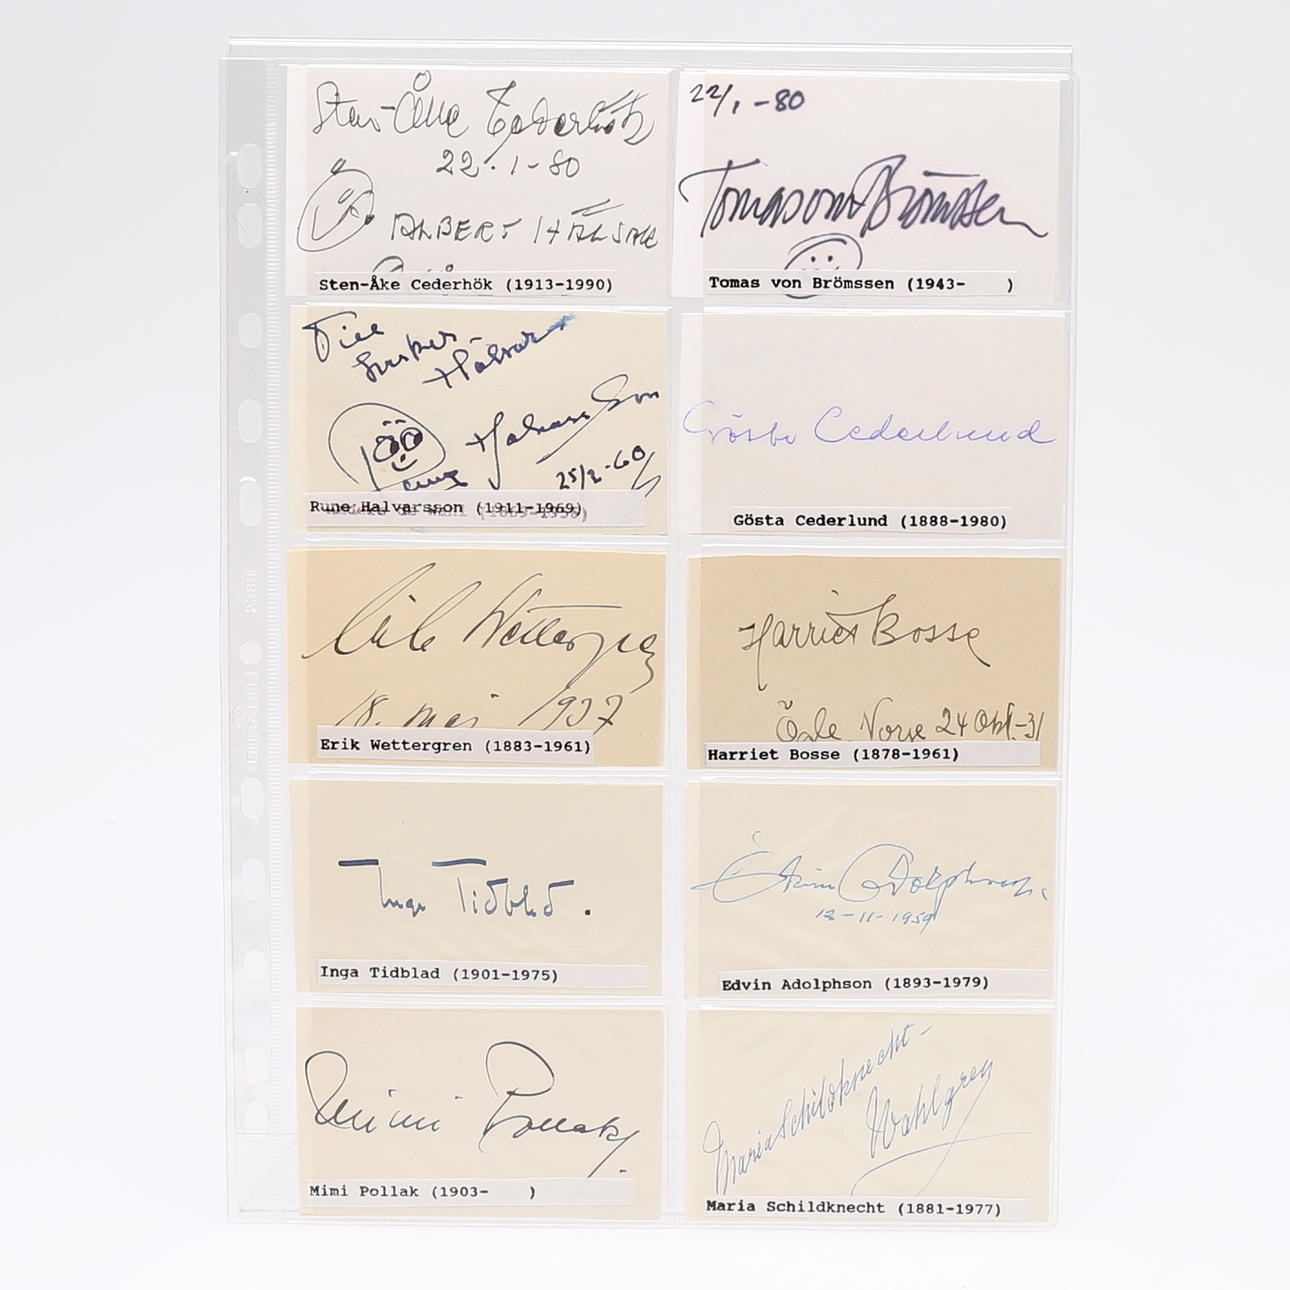 Sten-Åke Cederhök
22.1-80
ALBERT HÄLSAR
Sten-Åke Cederhök (1913-1990)
22/1 -80
Tomas von Brömssen
Tomas von Brömssen (1943-    )
Halvarsson
25/2-60
Rune Halvarsson (1911-1969)
Gösta Cederlund
Gösta Cederlund (1888-1980)
Erik Wettergren
18. maj 1937
Erik Wettergren (1883-1961)
Harriet Bosse
24 Okt.-31
Harriet Bosse (1878-1961)
Inga Tidblad.
Inga Tidblad (1901-1975)
Edvin Adolphson
12-11-1959
Edvin Adolphson (1893-1979)
Mimi Pollak
Mimi Pollak (1903-    )
Maria Schildknecht-
Wahlgren
Maria Schildknecht (1881-1977)